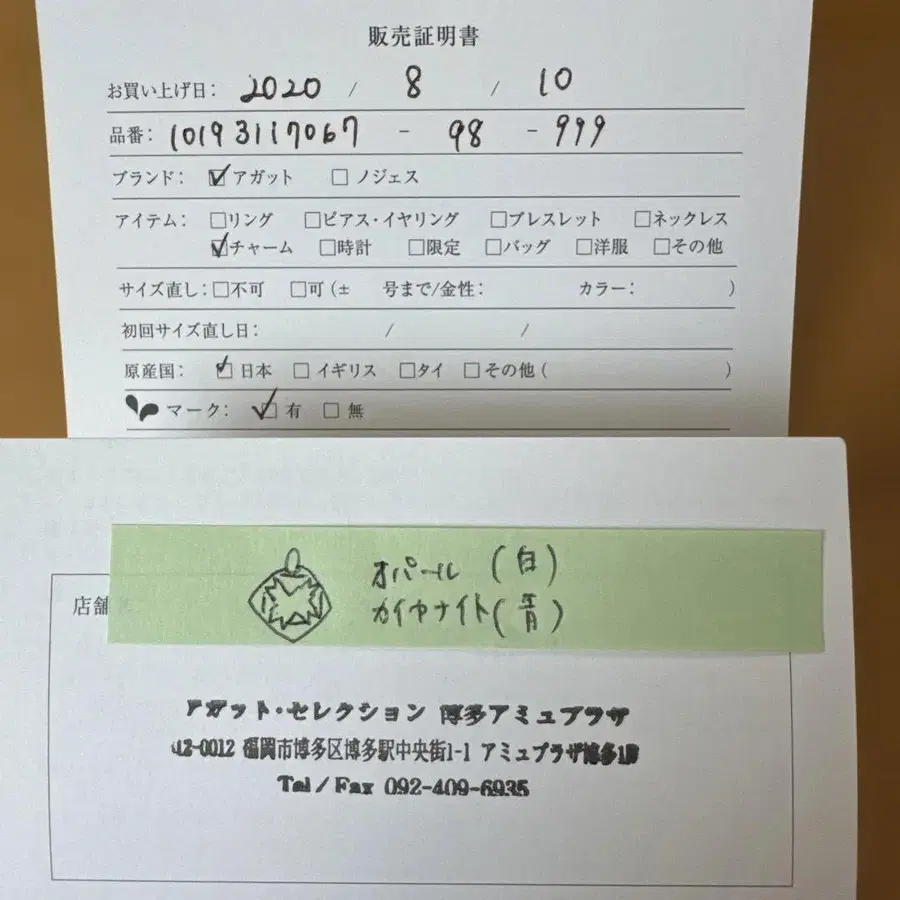 販売証明書
お買い上げ日: 2020 / 8 / 10
品番: 10193117067 - 98 - 999
ブランド: ☑アガット □ノジェス
アイテム: □リング □ピアス・イヤリング □ブレスレット □ネックレス
☑チャーム □時計 □限定 □バッグ □洋服 □その他
サイズ直し: □不可 □可 (± 号まで/金性: カラー: )
初回サイズ直し日: / /
原産国: ☑日本 □イギリス □タイ □その他 ( )
マーク: ☑有 □無
オパール (白)
カイヤナイト (青)
店舗
アガット・セレクション 博多アミュプラザ
12-0012 福岡市博多区博多駅中央街1-1 アミュプラザ博多1階
Tel / Fax 092-409-6935